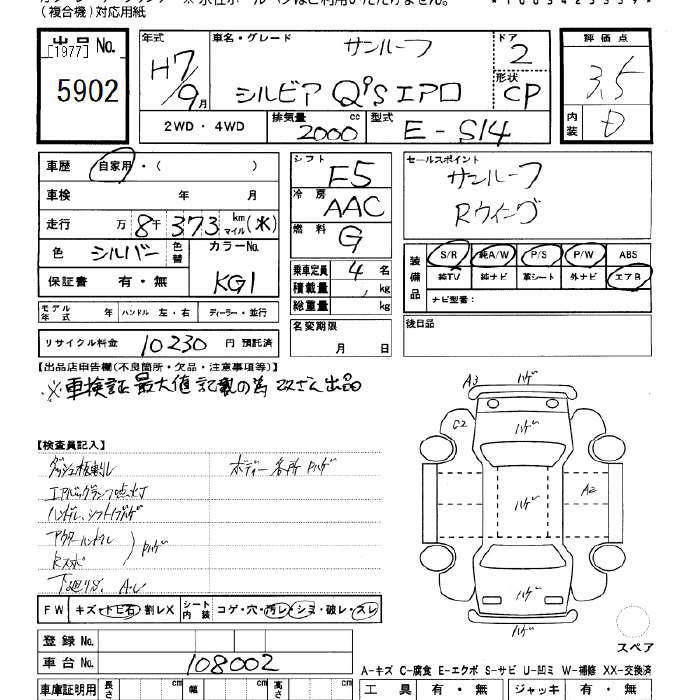 (複合機)対応用紙
出品No.
[1977]
5902
年式 H7/9月
車名・グレード サンルーフ
シルビア Q's エアロ
ドア 2
形状 CP
評価点 3.5
内装 D
2WD・4WD 排気量 2000 cc 型式 E-S14
車歴 自家用・( )
車検 年 月
走行 万 8千 373 km マイル (水)
色 シルバー 色替 カラーNo. KG1
保証書 有・無
モデル年式 年 ハンドル 左・右 ディーラー・並行
リサイクル料金 10230 円 預託済
シフト F5
冷房 AAC
燃料 G
乗車定員 4 名
積載量 , kg
総重量 kg
名変期限
月 日
セールスポイント
サンルーフ
Rウイング
装備品 S/R 純A/W P/S P/W ABS
純TV 純ナビ 革シート 外ナビ エアB
ナビ型番:
後日品
【出品店申告欄(不良箇所・欠品・注意事項等)】
※車検証最大値記載の為 改ざん出品
【検査員記入】
ボディー各所
エアバックランプ点灯
FW キズ・トビ石・割レX シート内装 コゲ・穴・汚レ・シミ・破レ・スレ
登録No.
車台No. 108002
車庫証明用 長さ cm 幅 cm 高さ cm
A3 ハゲ
C2 ハゲ
ハゲ A2
ハゲ
ハゲ
スペア
A-キズ C-腐食 E-エクボ S-サビ U-凹ミ W-補修 XX-交換済
工具 有・無 ジャッキ 有・無